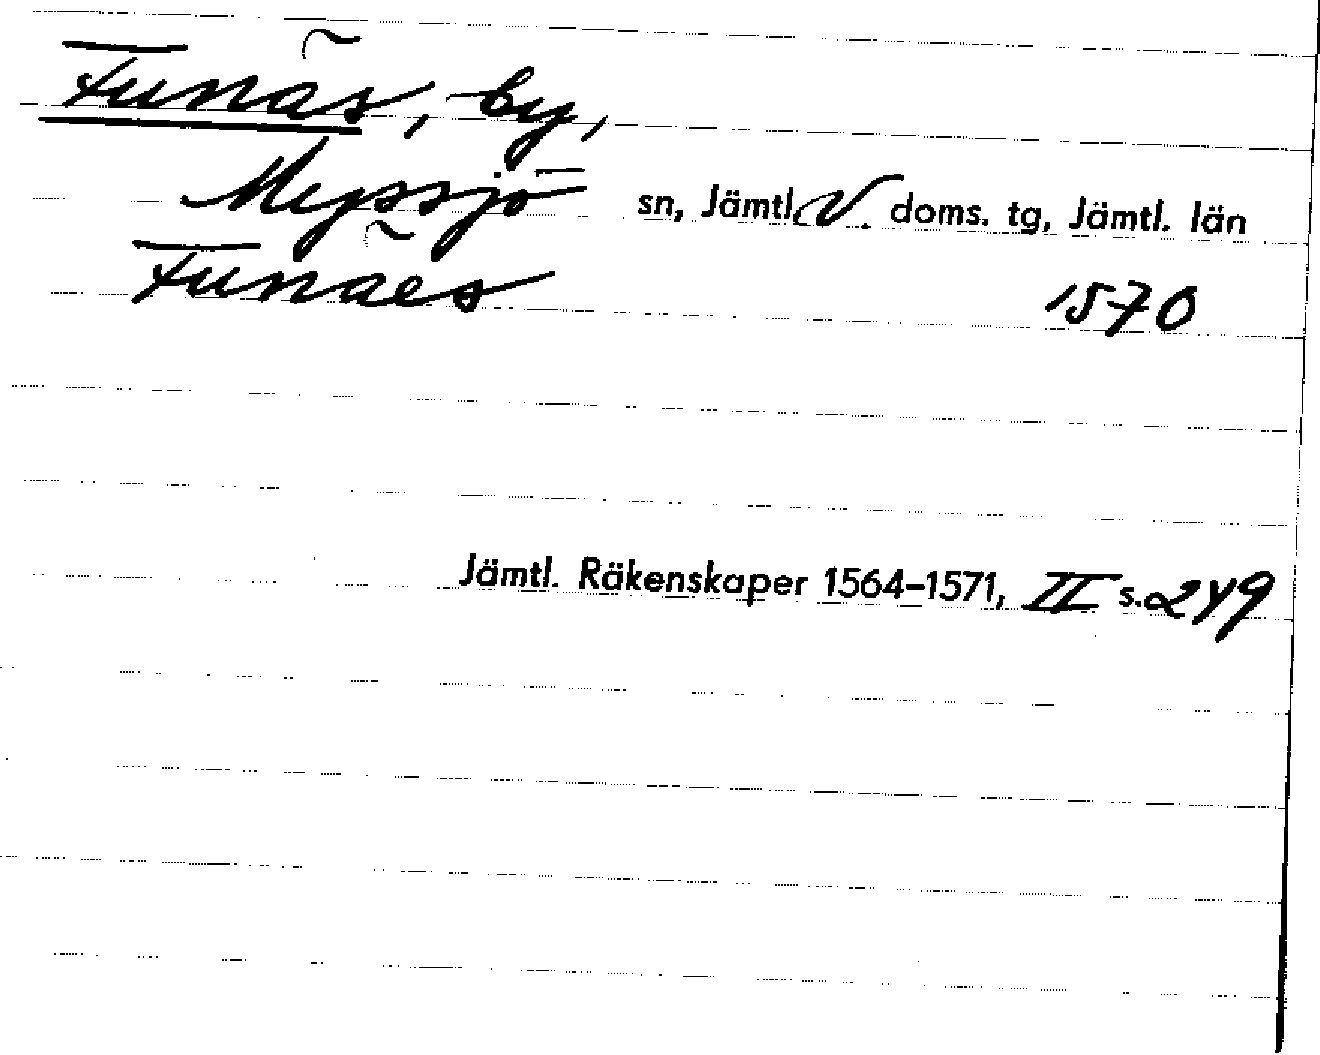 Funäs, by,
Myssjö sn, Jämtl. V. doms. tg, Jämtl. län
Funäes 1570
Jämtl. Räkenskaper 1564–1571, II s. 249